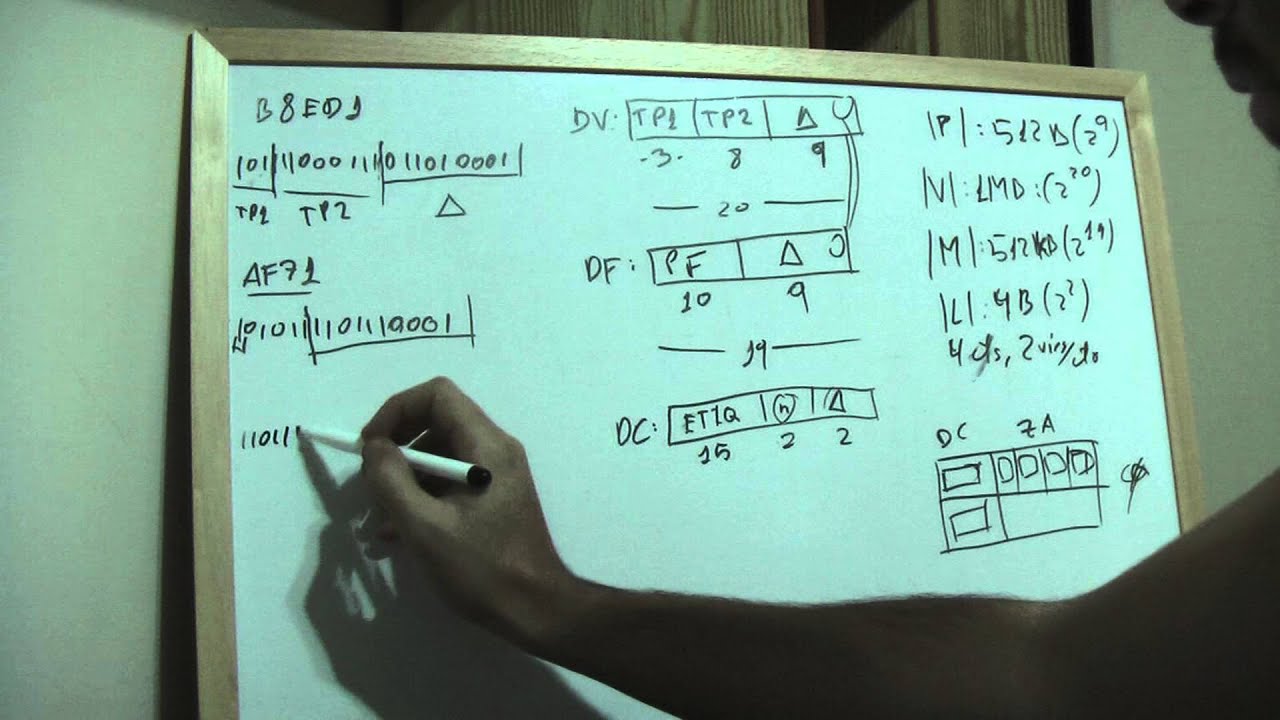 B8ED1
101 11000111 011010001
TP1 TP2 Δ
AF71
0101011 1101110001
110111
DV: TP1 TP2 Δ
-3- 8 9
20
DF: PF Δ
10 9
19
DC: ETIQ n Δ
15 2 2
|P|: 512B (2^9)
|V|: 1MB: (2^20)
|M|: 512KB (2^19)
|L|: 4B (2^2)
DC ZA